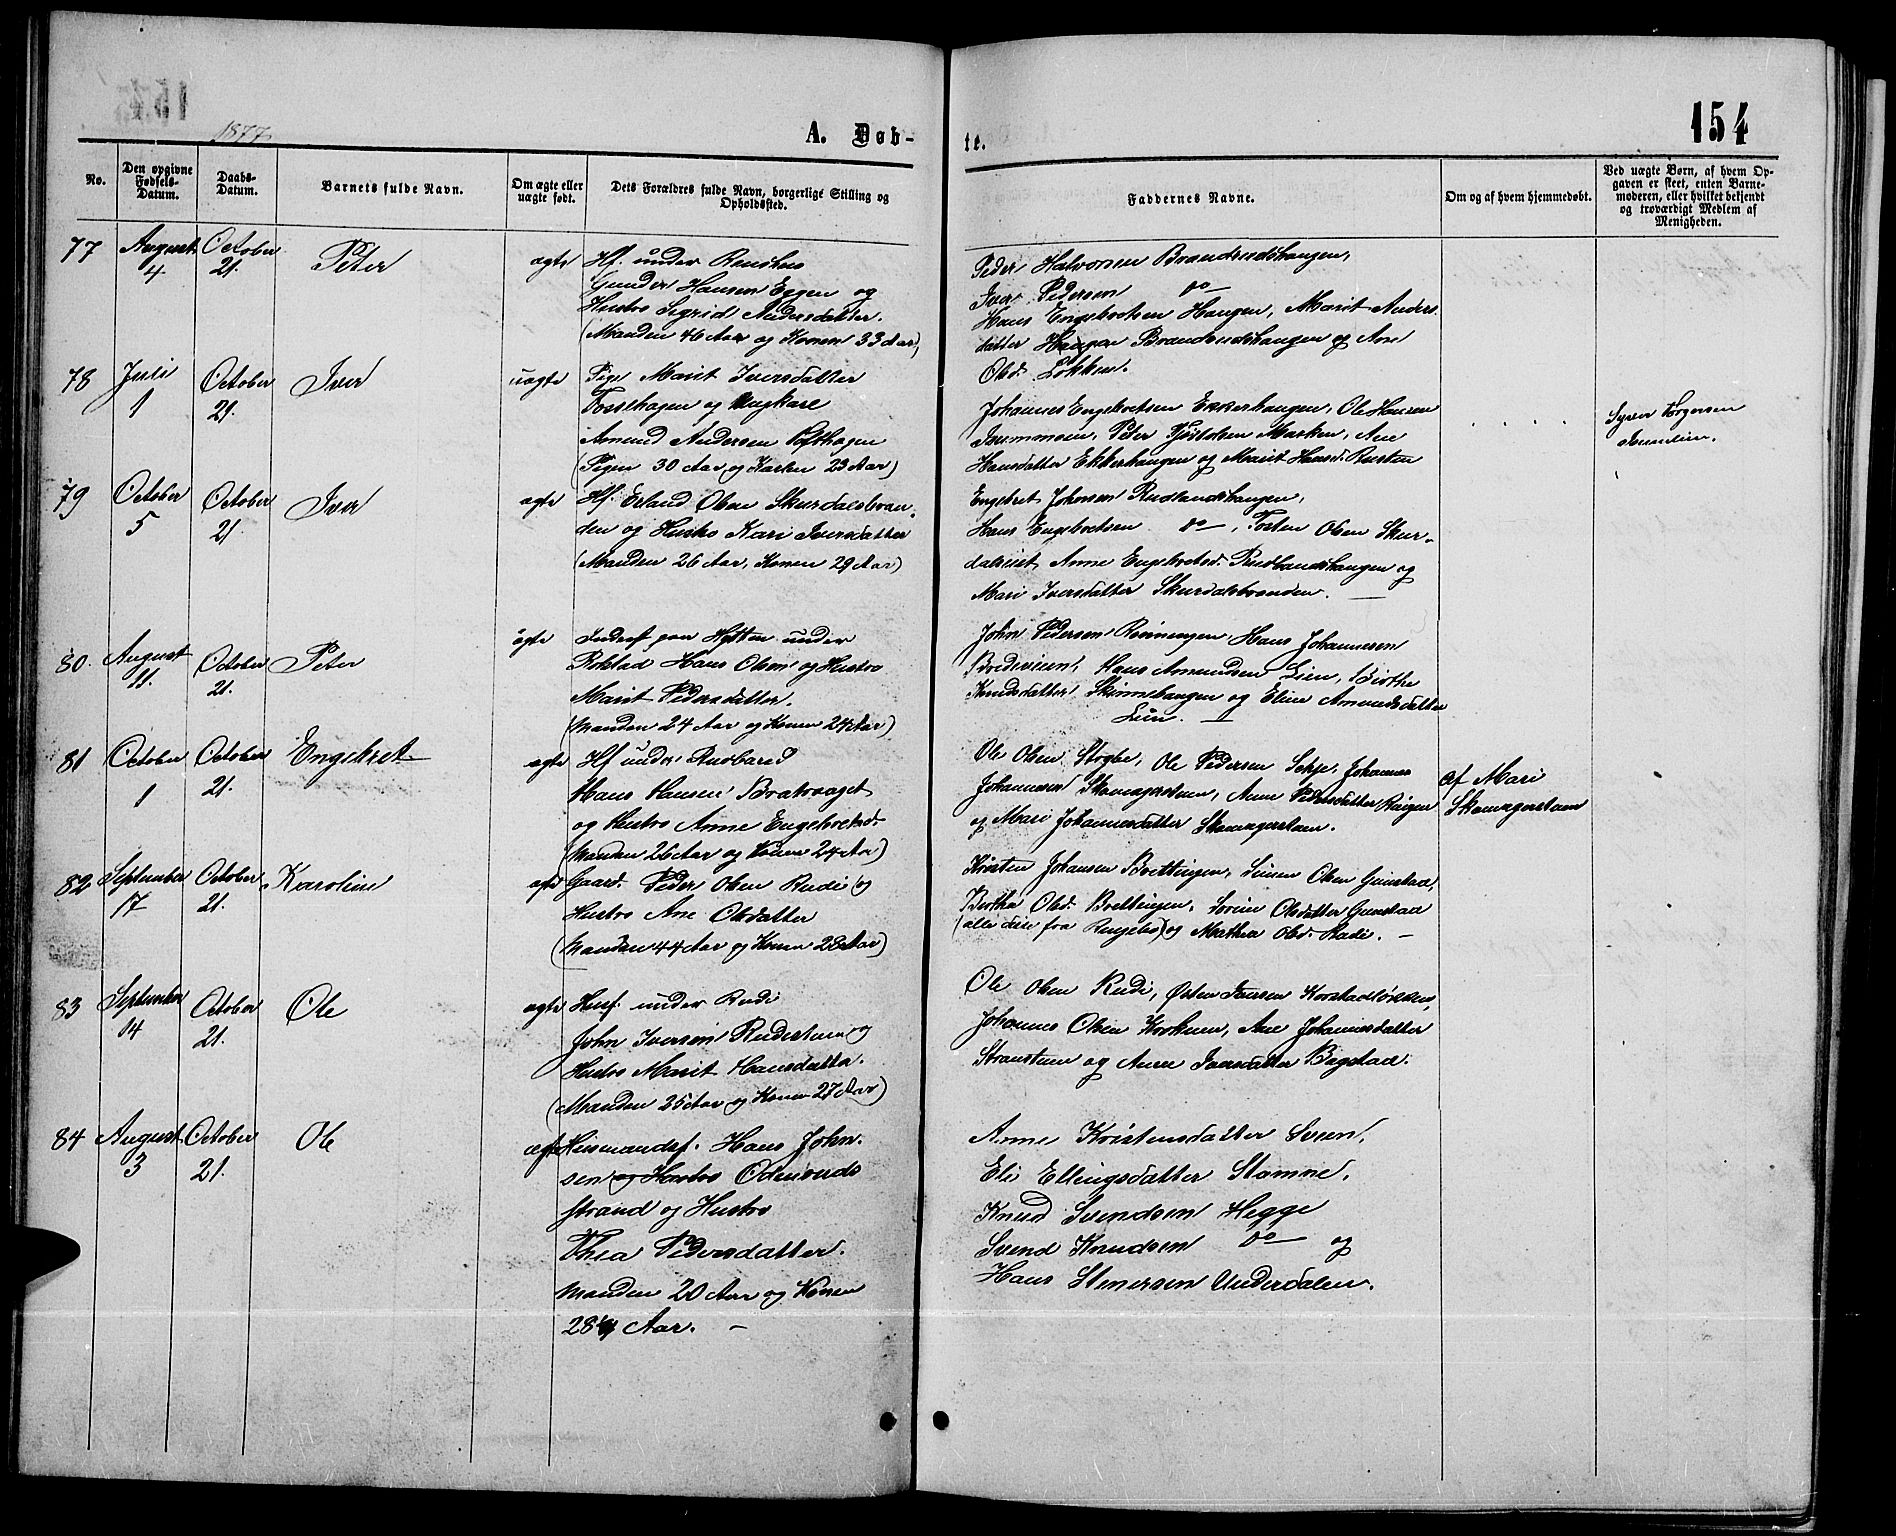 154
1877
A. Døb-
te.
No.
Den opgivne Fødsels-Datum.
Daabs-Datum.
Barnets fulde Navn.
Om ægte eller uægte født.
Dets Forældres fulde Navn, borgerlige Stilling og Opholdssted.
Faddernes Navne.
Om og af hvem hjemmedøbt.
Ved uægte Børn, af hvem Op-
gaven er skeet, enten Barne-
moderen, eller hvilket bekjendt
og troværdigt Medlem af
Menigheden.
77
August 4
October 21.
Peter
ægte
Hf. under
Gunder Hansen Eggen og
Hustro Sigrid Andersdatter.
(Manden 46 Aar og Konen 33 Aar)
Peder Halvorsen Brandrudshaugen,
Iver Pedersen do
Hans Engebretsen Haugen, Marit Anders
datter Brandrudshaugen og Ane
Olsd. Løkken.
78
Juli 1
October 21.
Iver
uægte
Pige Marit Iversdatter
Fossehagen og Ungkarl
Amund Andersen Lofthagen
(Pigen 30 Aar og Karlen 23 Aar)
Johannes Engebretsen Ekkerhaugen, Ole Hansen
Peter Tjøstolsen Marken, Ane
Hansdatter Ekkerhaugen og Marit Hansd. Rusten
79
October 5
October 21.
Iver
ægte
Hf. Erland Olsen Skurdalsbran-
den og Hustro Kari Iversdatter
(Manden 26 Aar, Konen 29 Aar)
Engebret Johnsen Rudlandshaugen,
Hans Engebretsen do, Tosten Olsen Skur-
Anne Engebretsd. Rudlandshaugen og
Mari Iversdatter Skurdalsbranden.
80.
August 11.
October 21.
Peter
ægte
Inderst paa under
Hans Olsen og Hustro
Marit Pedersdatter.
(Manden 24 Aar og Konen 24 Aar)
John Pedersen Hans Johannesen
Hans Amundsen Lien, Birthe
Knudsdatter Skinnehaugen og Eline Amundsdatter
Lien.
81
October 1
October 21.
Engebret
ægte
Hf under
Hans Hansen
og Hustro Anne Engebretsd.
(Manden 26 Aar og Konen 24 Aar)
Ole Olsen Stygbe, Ole Pedersen Selje, Johannes
Johannesen Skomagerstuen, Anne Pedersdatter
og Mari Johannesdatter Skomagerstuen.
af Mari
Skomagerstuen
82
September 17
October 21.
Karoline
ægte
Gaard. Peder Olsen Rudi og
Hustro Ane Olsdatter
(Manden 44 Aar og Konen 28 Aar)
Kristen Johansen Brettingen, Simen Olsen Gunstad,
Berthe Olsd. Brettingen, Sorine Olsdatter Gunstad
(alle disse fra Ringebo) og Mathea Olsd. Rudi.
83
September 14
October 21.
Ole
ægte
Husf. under Rudi
John Iversen Rudistuen og
Hustro Marit Hansdatter.
(Manden 25 Aar og Konen 27 Aar)
Ole Olsen Rudi, Østen Iversen Korstadløkken,
Johannes Olsen Ane Johannesdatter
Stranstuen og Anne Iversdatter Bagstad.
84
August 3
October 21.
Ole
ægte
Husmandsf. Hans John-
sen og Hustro Odensruds
strand og Hustro
Thea Pedersdatter.
Manden 20 Aar og Konen
28 Aar.
Anne Kristensdatter Sveen,
Eli Ellingsdatter Stamne,
Knud Svendsen Hegge
Svend Knudsen do og
Hans Stenersen Underdalen.